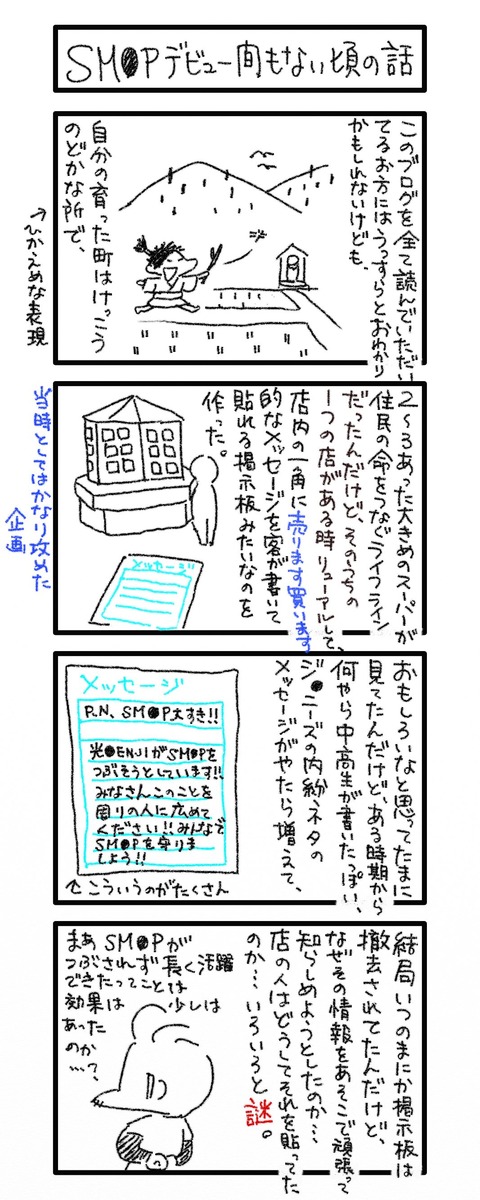 SM●Pデビュー間もない頃の話
このブログを全て読んでいただい
てるお方にはうっすらとおわかり
かもしれないけども、
自分の育った町はけっこう
のどかな所で、
↑ひかえめな表現
2~3あった大きめのスーパーが
住民の命をつなぐライフライン
だったんだけど、そのうちの
1つの店がある時リューアルして、
店内の一角に売ります買います
的なメッセージを客が書いて
貼れる掲示板みたいなのを
作った。
メッセージ
当時としてはかなり攻めた
企画
おもしろいなと思ってたまに
見てたんだけど、ある時期から
何やら中高生が書いたっぽい、
ジ●ニーズの内紛ネタの
メッセージがやたら増えて、
メッセージ
P.N、SM●P大すき!!
光●ENJIがSM●Pを
つぶそうとしています!!
みなさんこのことを
周りの人に広めて
ください!!みんなで
SM●Pを守りま
しよう!!
↑こういうのがたくさん
結局いつのまにか掲示板は
撤去されてたんだけど、
なぜその情報をあそこで頑張って
知らしめようとしたのか…
店の人はどうしてそれを貼ってた
のか…いろいろと謎。
まあSM●Pが
つぶされず長く活躍
できたってことは
効果は少しは
あった
のか
…?